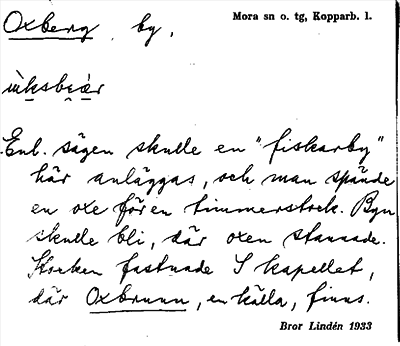 Oxberg by,
Mora sn o. tg, Kopparb. l.
Enl. sägen skulle en "fiskarby"
här anläggas, och man spände
en oxe för en timmerstock. Byn
skulle bli, där oxen stannade.
Stocken fastnade S kapellet,
där Oxbrunn, en källa, finns.
Bror Lindén 1933